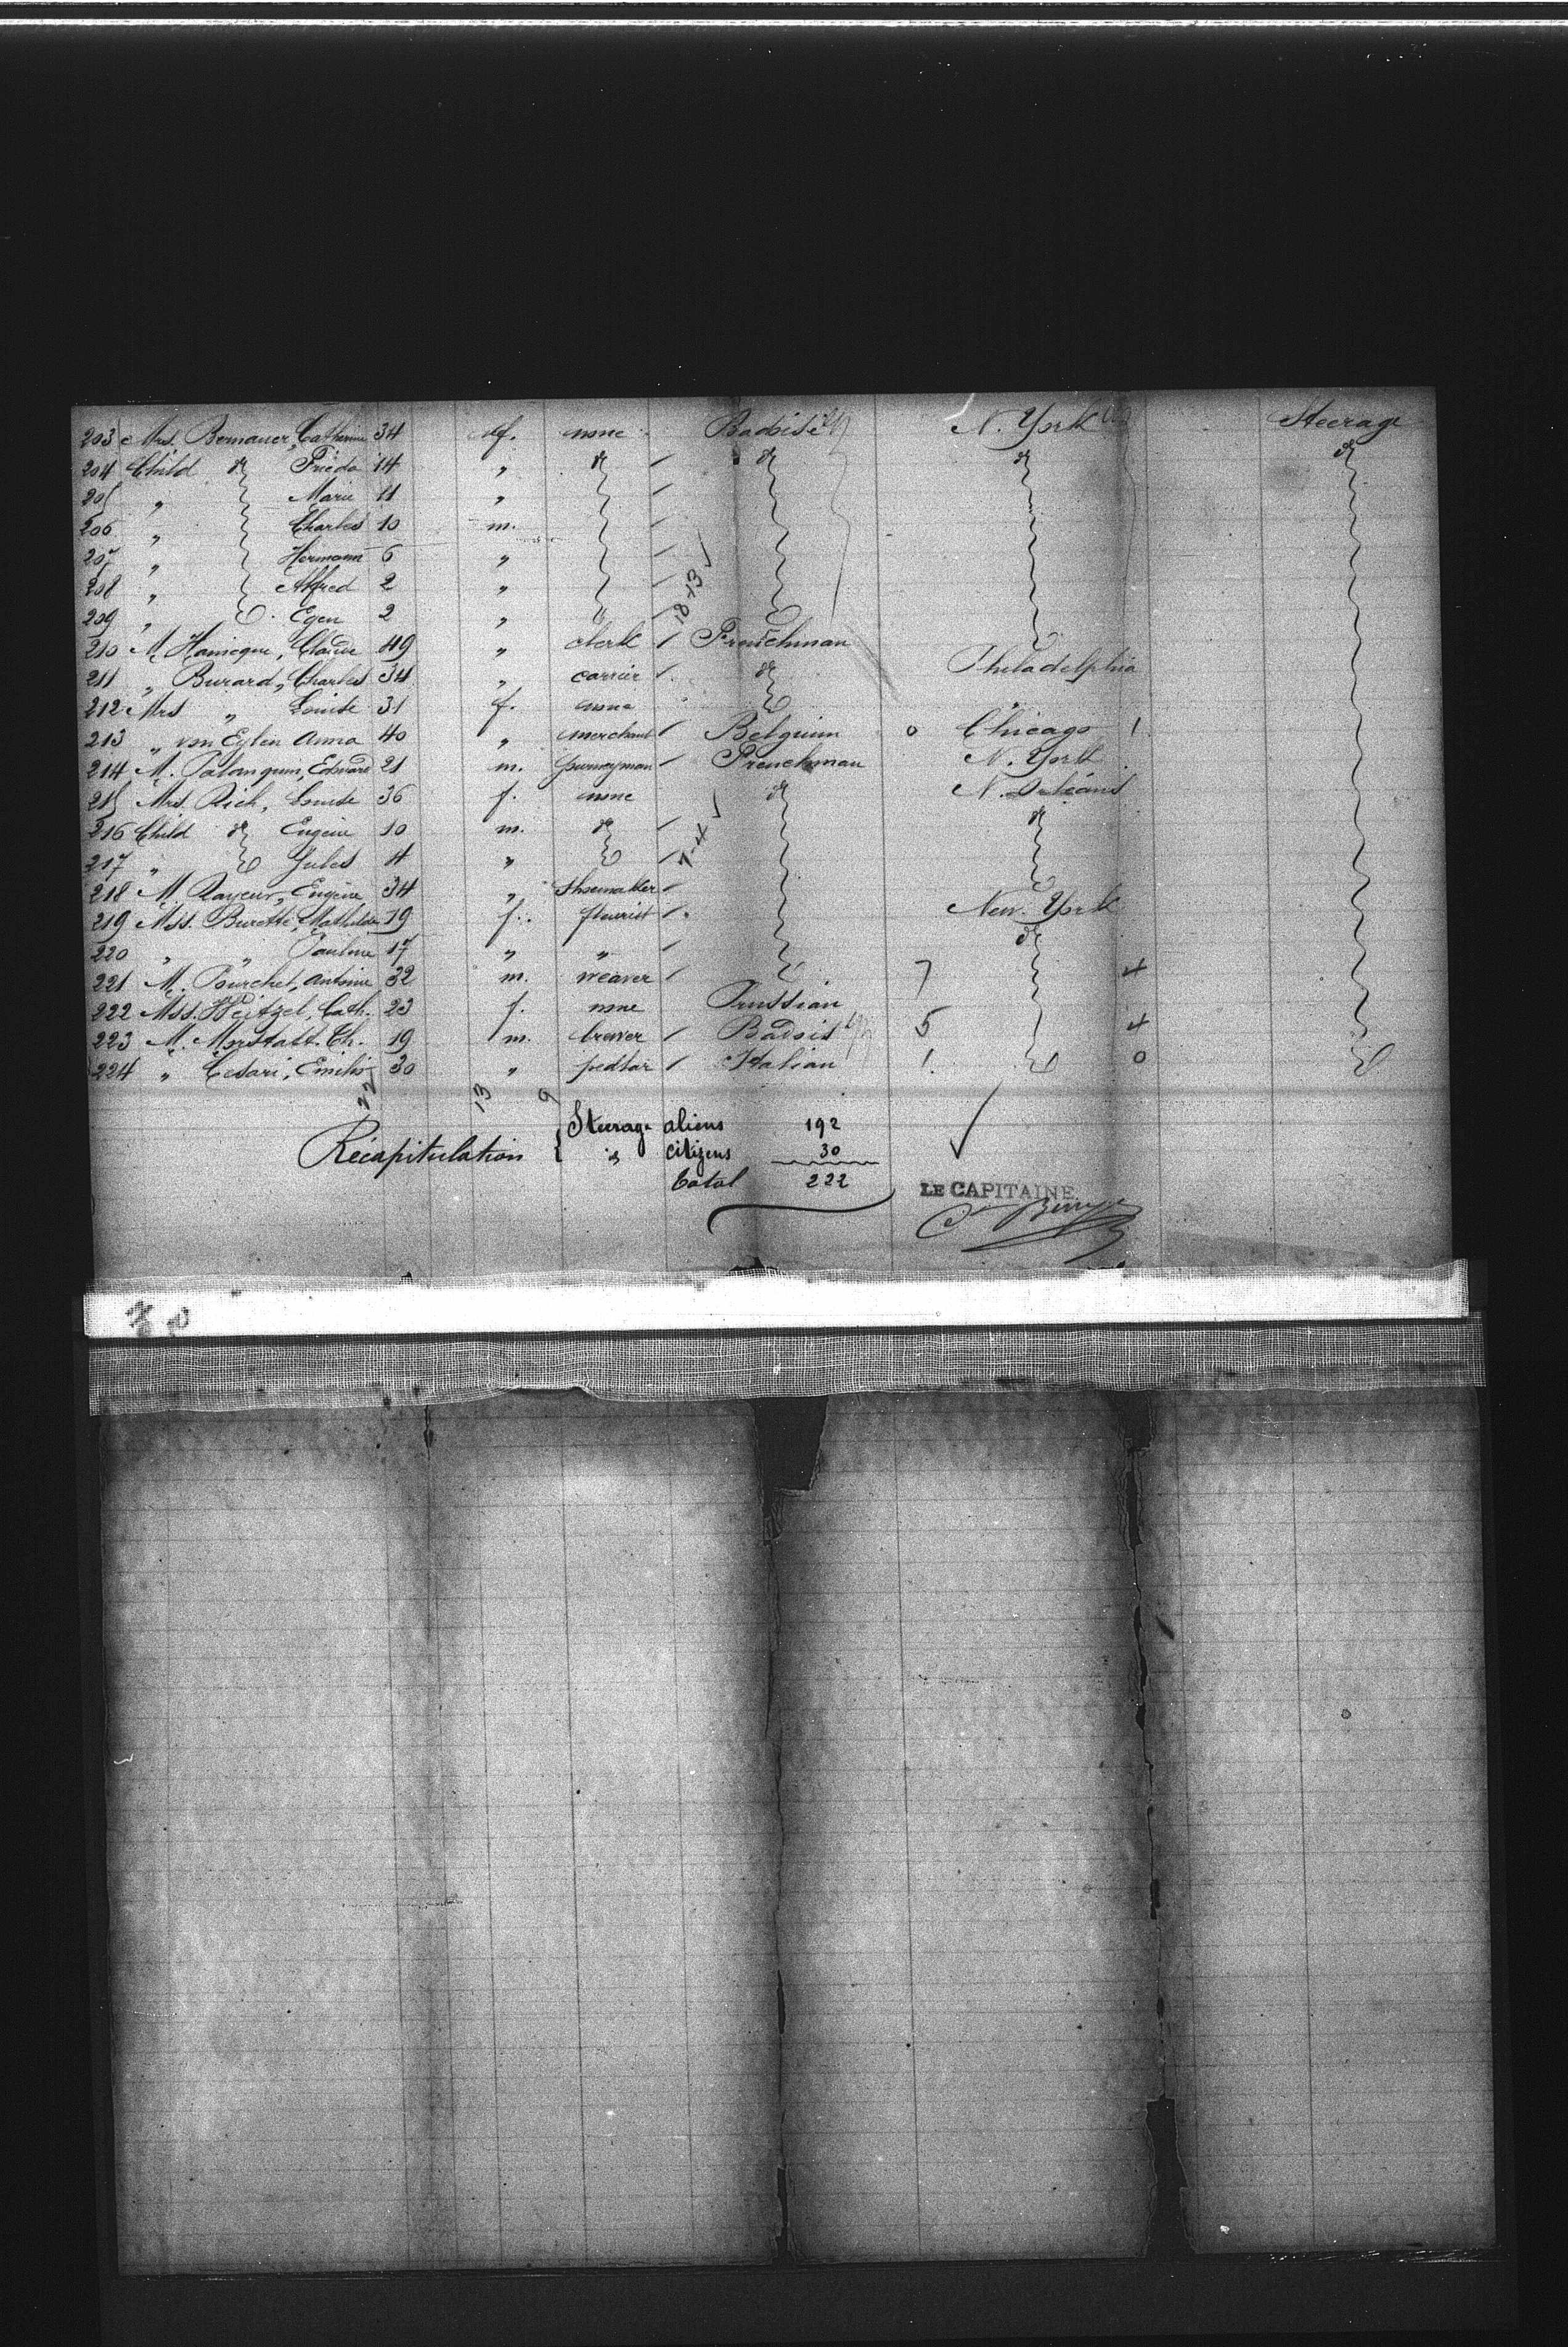 203 Mrs. Bernauer, Catherine 34 f. none Badois N. York Steerage
204 Child do Frieda 14 " do do do do
205 " Marie 11 "
206 " Charles 10 m.
207 " Hermann 6 "
208 " Alfred 2 "
209 " Egen 2 " "
18-13
210 M. Clause 49 " clerk Frenchman
211 " Burard, Charles 34 " carrier do Philadelphia
212 Mrs " Louise 31 f. none "
213 " von Eylen Anna 40 " merchant Belgium 0 Chicago 1
214 M. Palanquin, Edward 21 m. journeyman Frenchman N. York
215 Mrs. Rich, Louise 36 f. none do N. Orléans
216 Child do Eugène 10 m. do do
7-4
217 " Jules 4 "
218 M. Rayeur, Eugène 34 " Shoemaker
219 Mss. Burette, Mathilde 19 f. fleurist New. York
220 " " Pauline 17 " " do
221 M. Pourchet, Antoine 32 m. weaver 7 4
222 Mss. Weitzel, Cath. 23 f. none Prussian
223 M. Morstatt Ch. 19 m. brewer Badois 5 4
224 " Cesari, Emilio 30 " pedlar Italian 1 0
22 13 9
Récapitulation { Steerage aliens 192
" citizens 30
Total 222
LE CAPITAINE